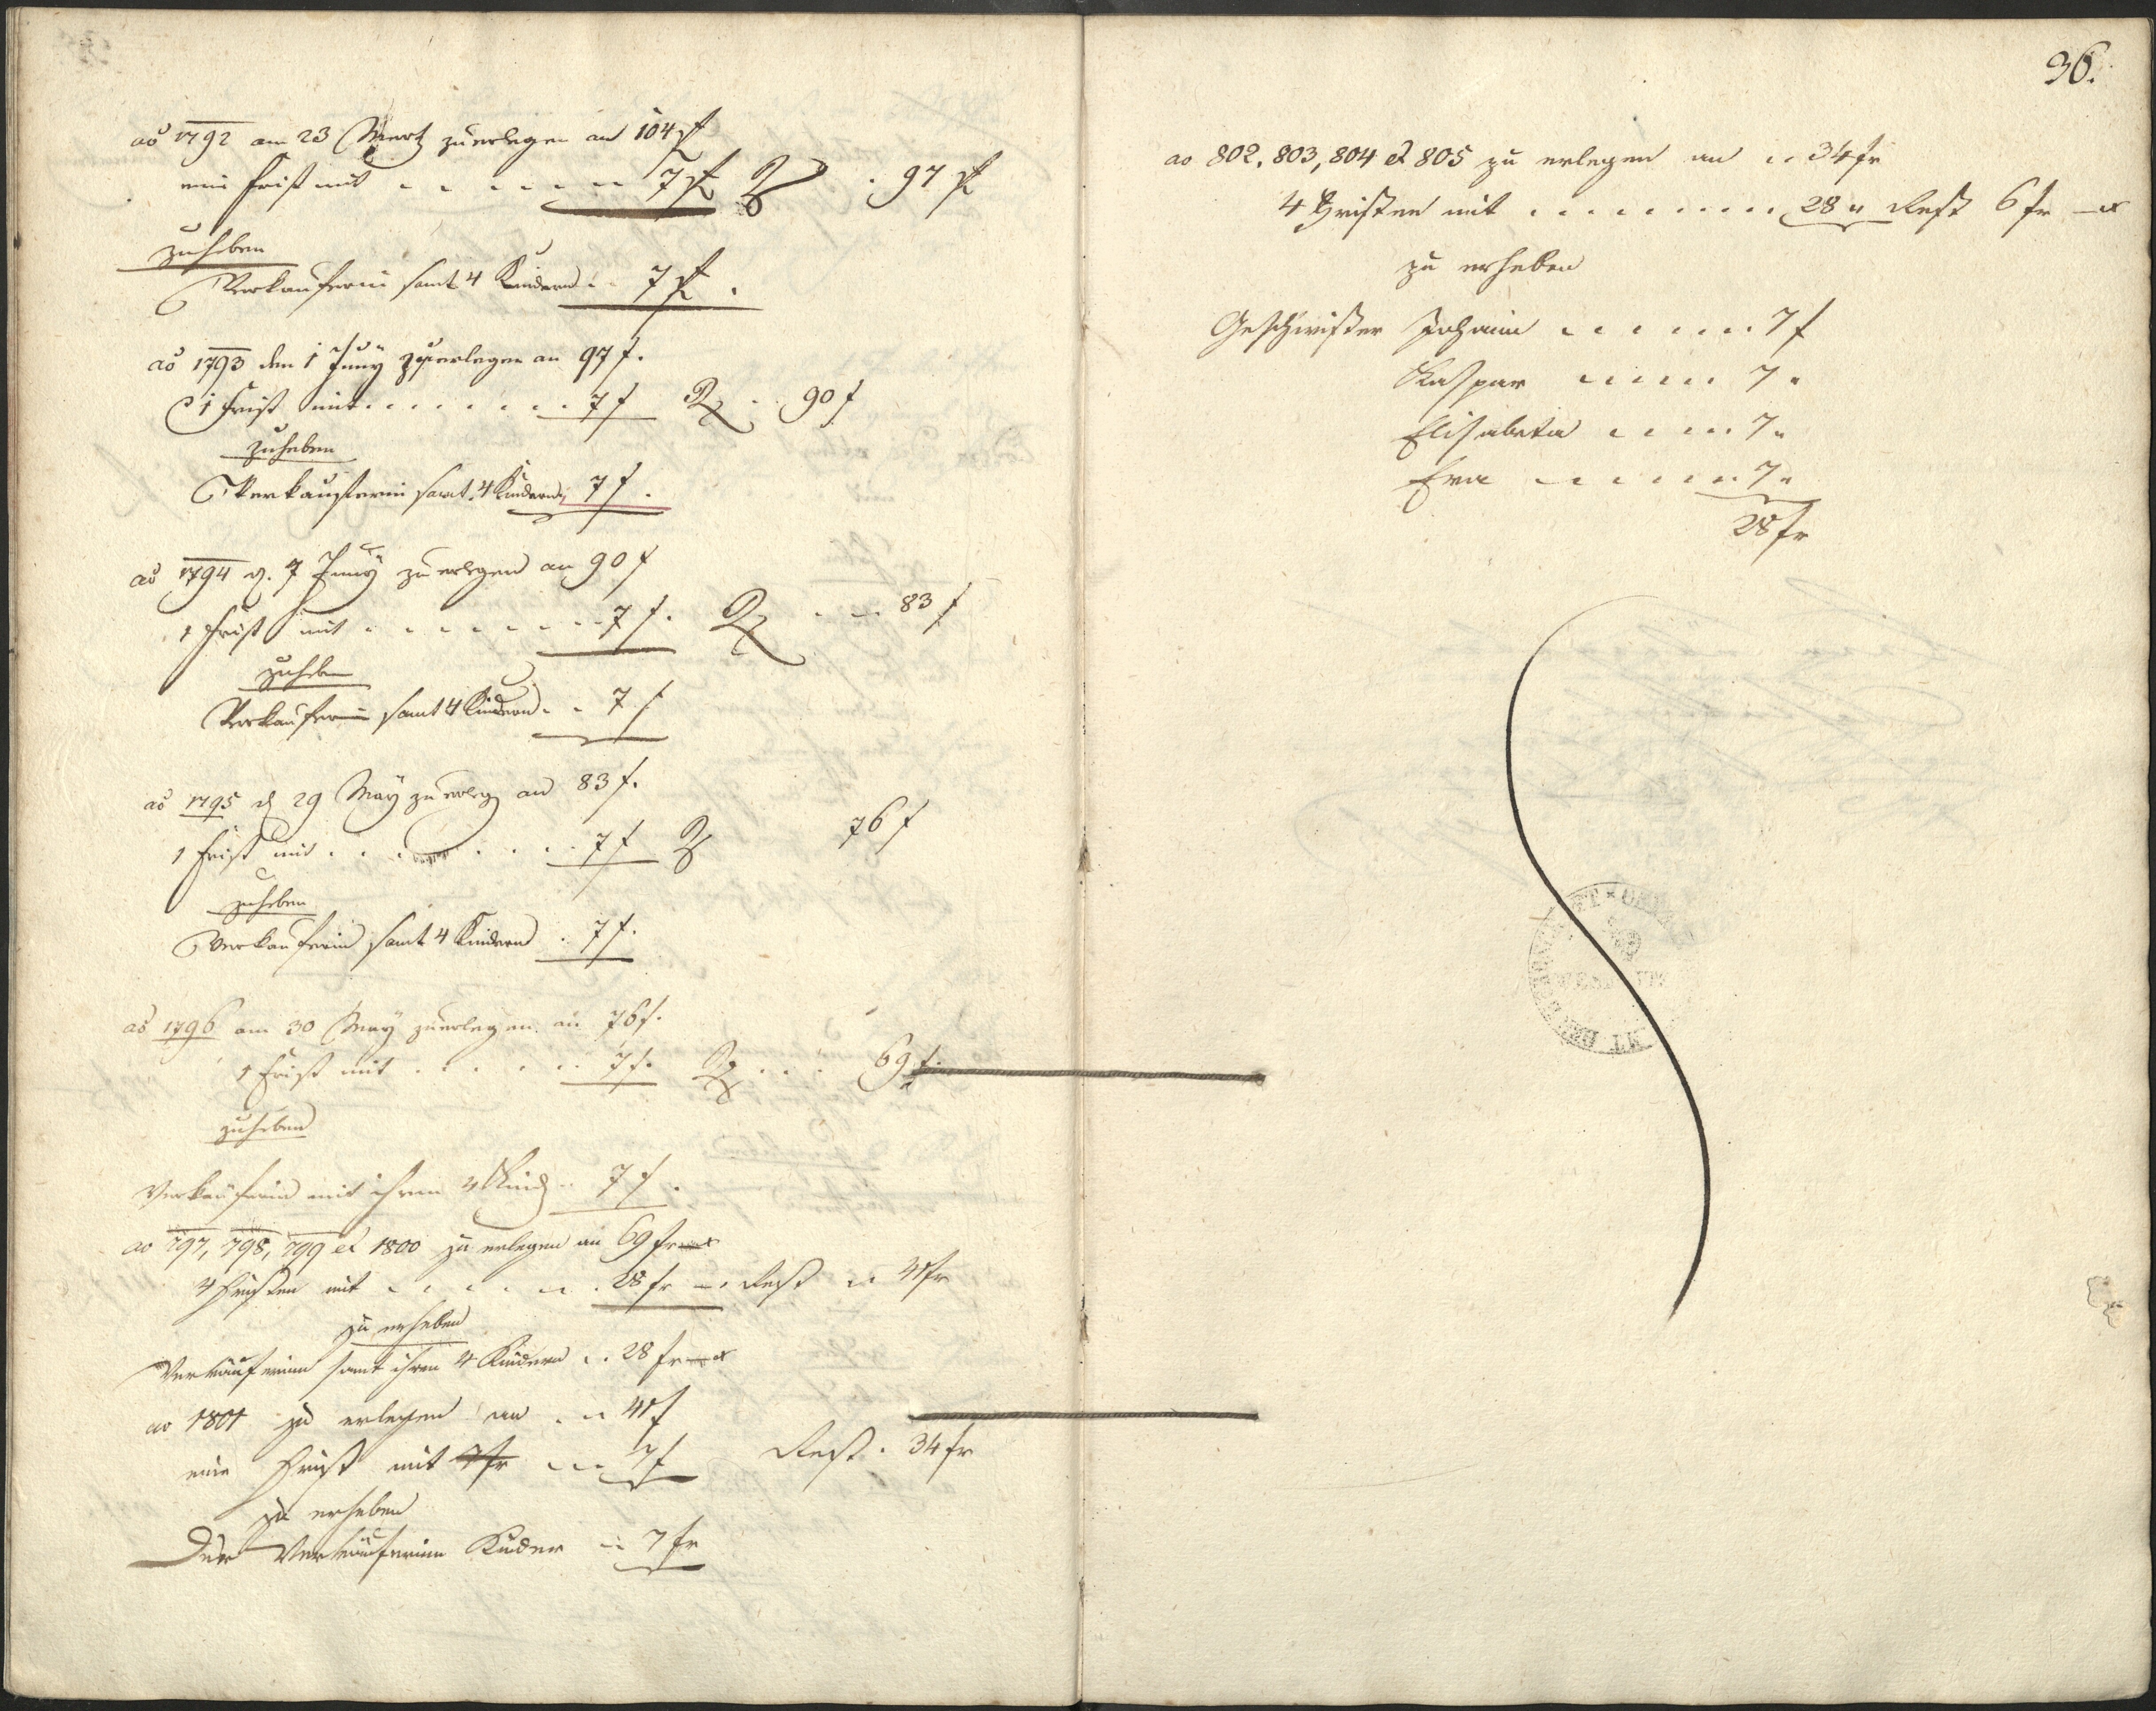 ao 1792 am 23 Mertz zu erlegen an 104 f
eine Frist mit . . . . . . 7 f R . 97 f
zuheben
Verkauferin samt 4 Kindern . . 7 f .
ao 1793 den 1 Juny zu erlegen an 97 f.
1 Frist mit . . . . . . . . 7 f R . . 90 f
zuheben
Verkauferin samt 4 Kindern 7 f .
ao 1794 d. 7 Juny zu erlegen an 90 f
1 Frist mit . . . . . . . . 7 f . R . . 83 f
zuheben
Verkauferin samt 4 Kindern . . 7 f
ao 1795 d 29 May zu erleg an 83 f.
1 Frist mit . . . . . . . 7 f R 76 f
zuheben
Verkauferin samt 4 Kindern . 7 f.
ao 1796 am 30 May zu erlegen an 76 f.
1 Frist mit . . . . . . 7 f. R . . . 69 f.
zuheben
Verkauferin mit ihren 4 Kind . . 7 f .
ao 797, 798, 799 et 1800 zu erlegen an 69 fr — x
4 Fristen mit . . . . . . . 28 fr — . Rest . . 41 fr
zu erheben
Verkäuferinn samt ihren 4 Kindern . . 28 fr — x
ao 1801 zu erlegen an . . . 41 f
eine Frist mit 7 fr . . . 7 f Rest . 34 fr
zu erheben
Der Verkäuferinn Kinder . . 7 fr
36.
ao 802, 803, 804 et 805 zu erlegen an . . 34 fr
4 Fristen mit . . . . . . . . . 28 " Rest 6 fr — x
zu erheben
Geschwister Johann . . . . . . 7 f
Kaspar . . . . . 7 "
Elisabeta . . . . 7 "
Eva . . . . . . 7 "
28 fr